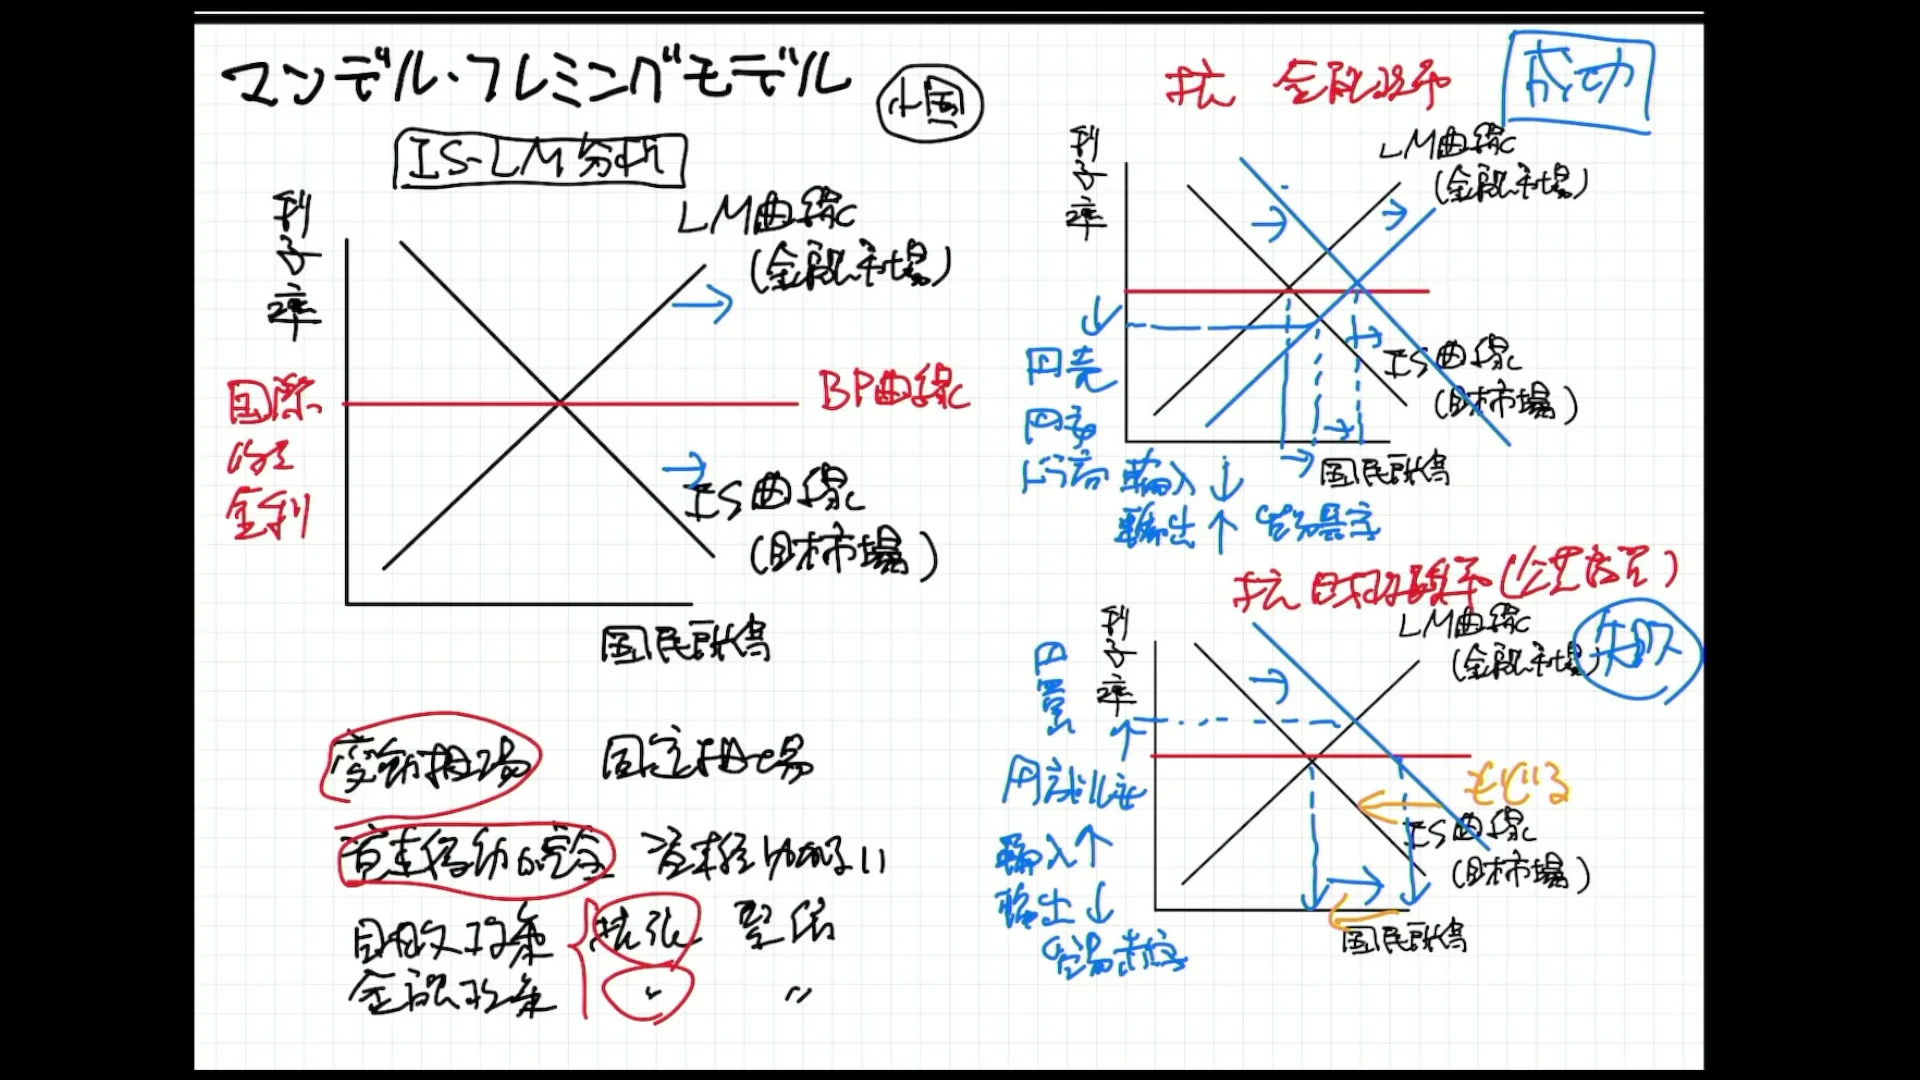 マンデル・フレミングモデル
小国
IS-LM分析
利子率
LM曲線
(金融市場)
国際
金利
BP曲線
IS曲線
(財市場)
国民所得
変動相場 固定相場
資本移動が完全 資本移動がない
財政政策 拡張 緊縮
金融政策 〃 〃
拡 金融政策
成功
利子率
LM曲線
(金融市場)
円売
円安
ドル高
IS曲線
(財市場)
国民所得
輸入↓
輸出↑ 貿易黒字
拡 財政政策(公共投資)
失敗
利子率
LM曲線
(金融市場)
円買
円高
輸入↑
輸出↓
貿易赤字
もどる
IS曲線
(財市場)
国民所得